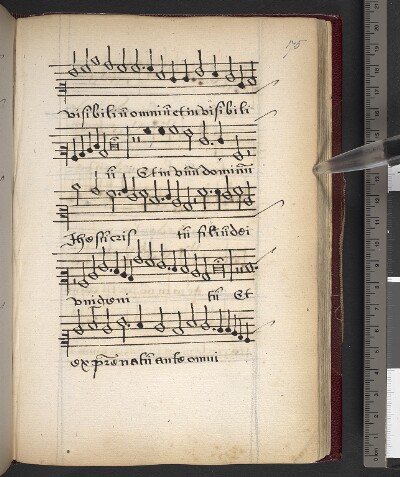 175
visibiliū omniū et in visibili
ū Et in vnū dominū
Jhesū cris tū filiū dei
vnigeni tū Et
ex pr̄e natū ante omni